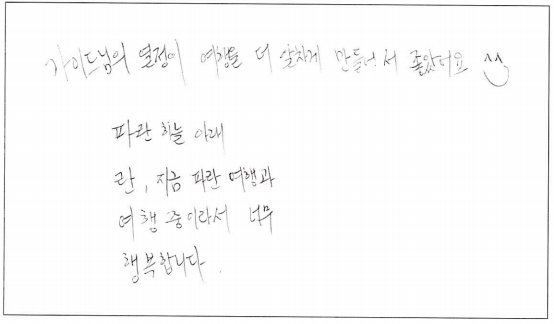 가이드님의 열정이 여행을 더 알차게 만들어서 좋았어요 ^^
파란 하늘 아래
란, 지금 파란 여행과
여행 중이라서 너무
행복합니다.